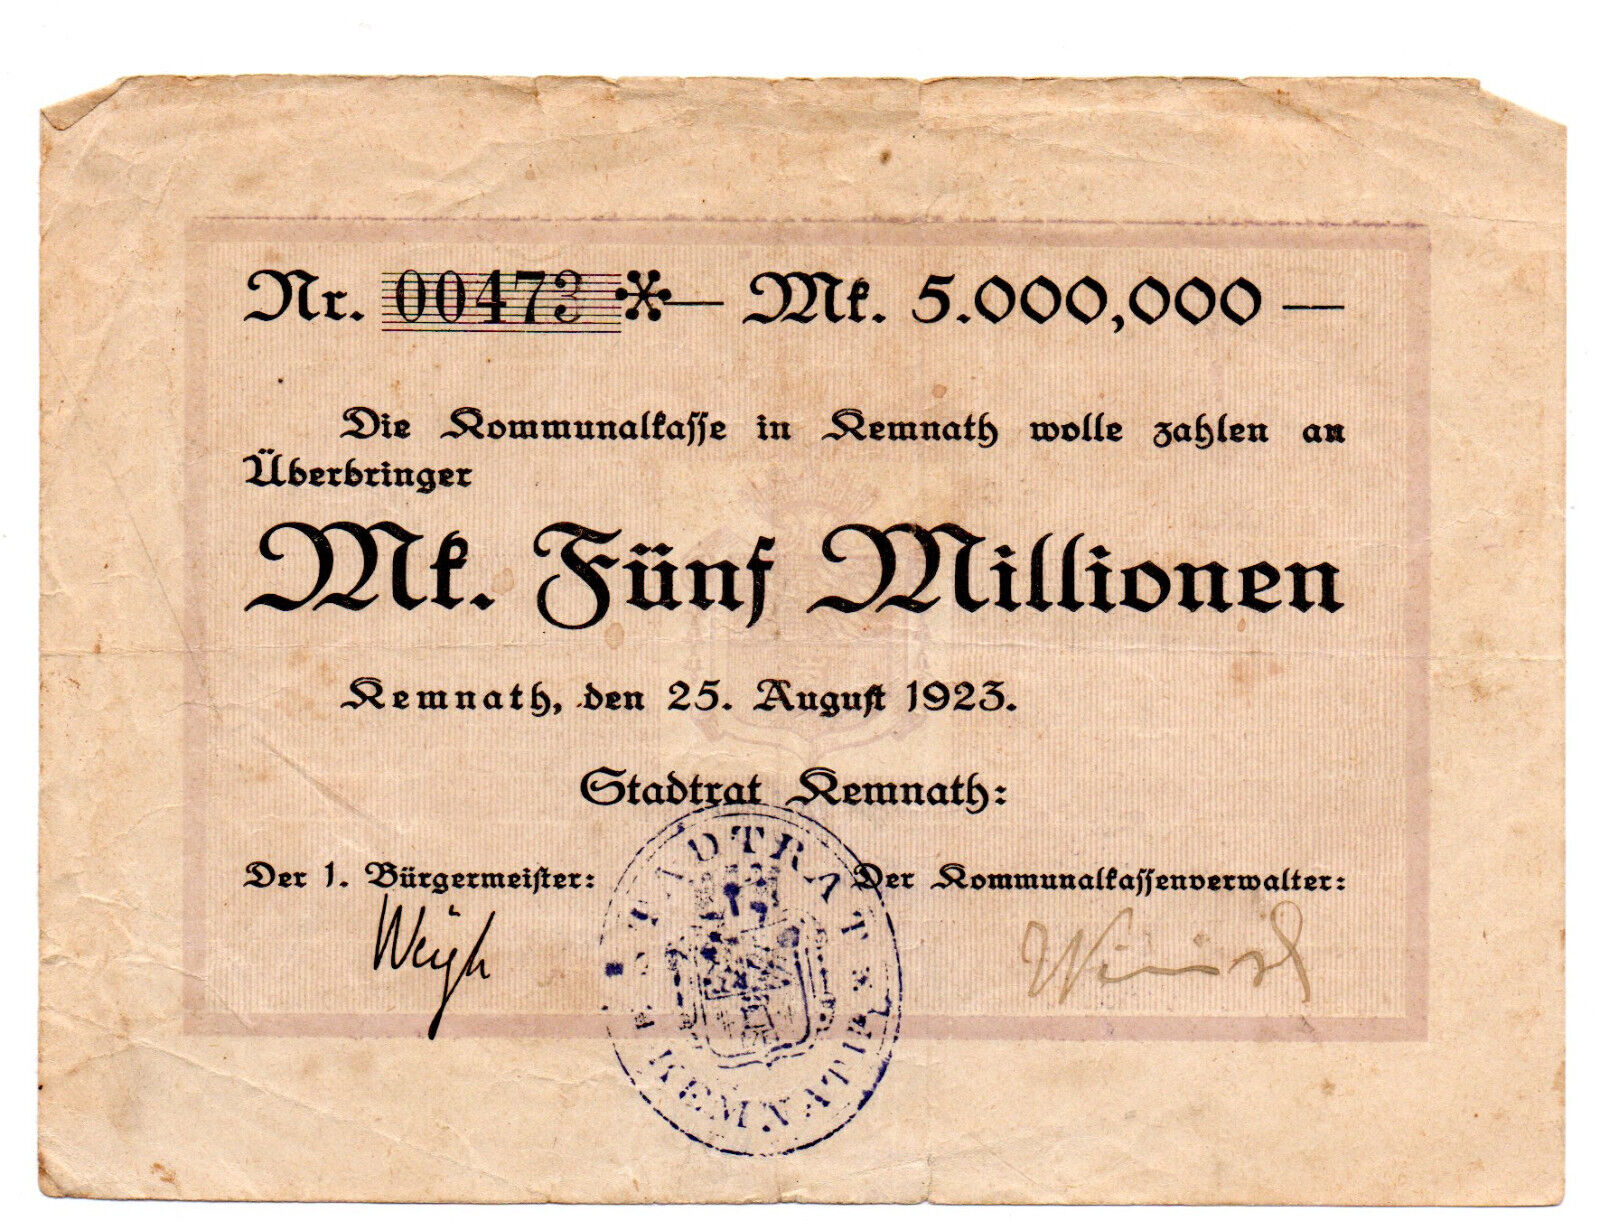 Nr. 00473 — Mk. 5.000,000 —
Die Kommunalkasse in Kemnath wolle zahlen an
Überbringer
Mk. Fünf Millionen
Kemnath, den 25. August 1923.
Stadtrat Kemnath:
Der 1. Bürgermeister: Der Kommunalkassenverwalter:
STADTRAT
KEMNATH